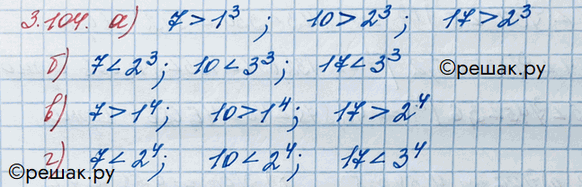 3.104. а) 7 > 1³ ; 10 > 2³; 17 > 2³
б) 7 < 2³; 10 < 3³; 17 < 3³
©решак.ру
в) 7 > 1⁴; 10 > 1⁴; 17 > 2⁴
г) 7 < 2⁴; 10 < 2⁴; 17 < 3⁴
©решак.ру